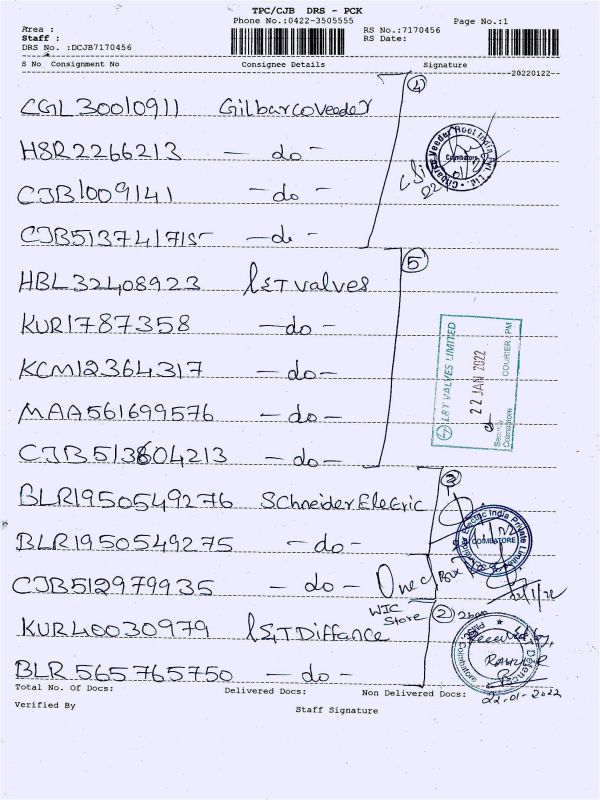 TPC/CJB DRS - PCK
Area : Phone No.:0422-3505555 Page No.:1
Staff : RS No.:7170456
DRS No. :DCJB7170456 RS Date:
S No Consignment No Consignee Details Signature
20220122
CGL30010911 Gilbarcoveeder 4
HSR2266213 — do —
CJB1009141 — do —
CJB513741715 — do —
HBL32408923 L&Tvalves 5
KUR1787358 — do —
KCM12364317 — do —
MAA561699576 — do —
CJB513804213 — do —
BLR1950549276 SchneiderElectric 3
BLR1950549275 — do —
CJB512979935 — do — One Box
WIC Store
KUR40030979 L&TDiffance 2
BLR565765750 — do —
Gilbarco Veeder Root India Pvt. Ltd.
Coimbatore
L&T VALVES LIMITED
22 JAN 2022
COURIER PM
Coimbatore
Electric India Private Limited
COIMBATORE
Received by,
22-01-2022
Total No. Of Docs: Delivered Docs: Non Delivered Docs:
Verified By Staff Signature